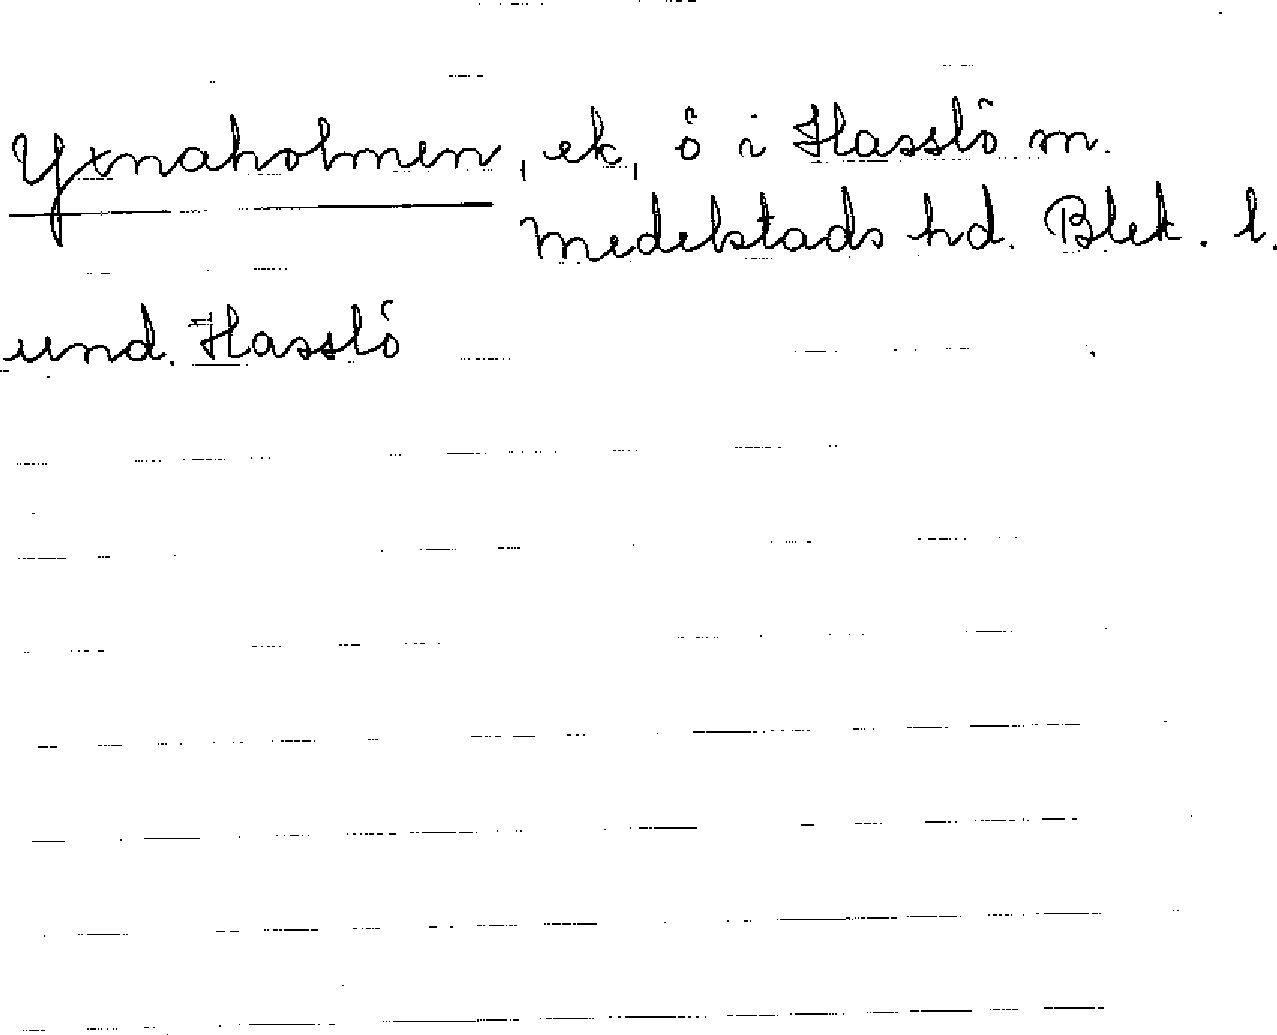 Yxnaholmen, ek, ö i Hasslö m.
Medelstads hd. Blek. l.
und. Hasslö